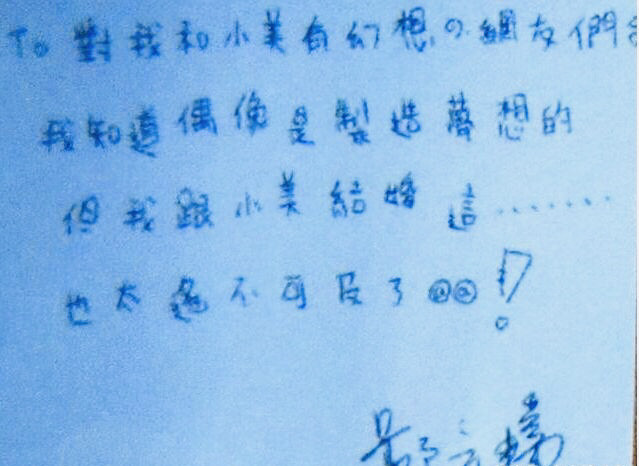 To 對我和小美有幻想の網友們
我知道偶像是製造夢想的
但我跟小美結婚 這........
也太遙不可及了@@!?